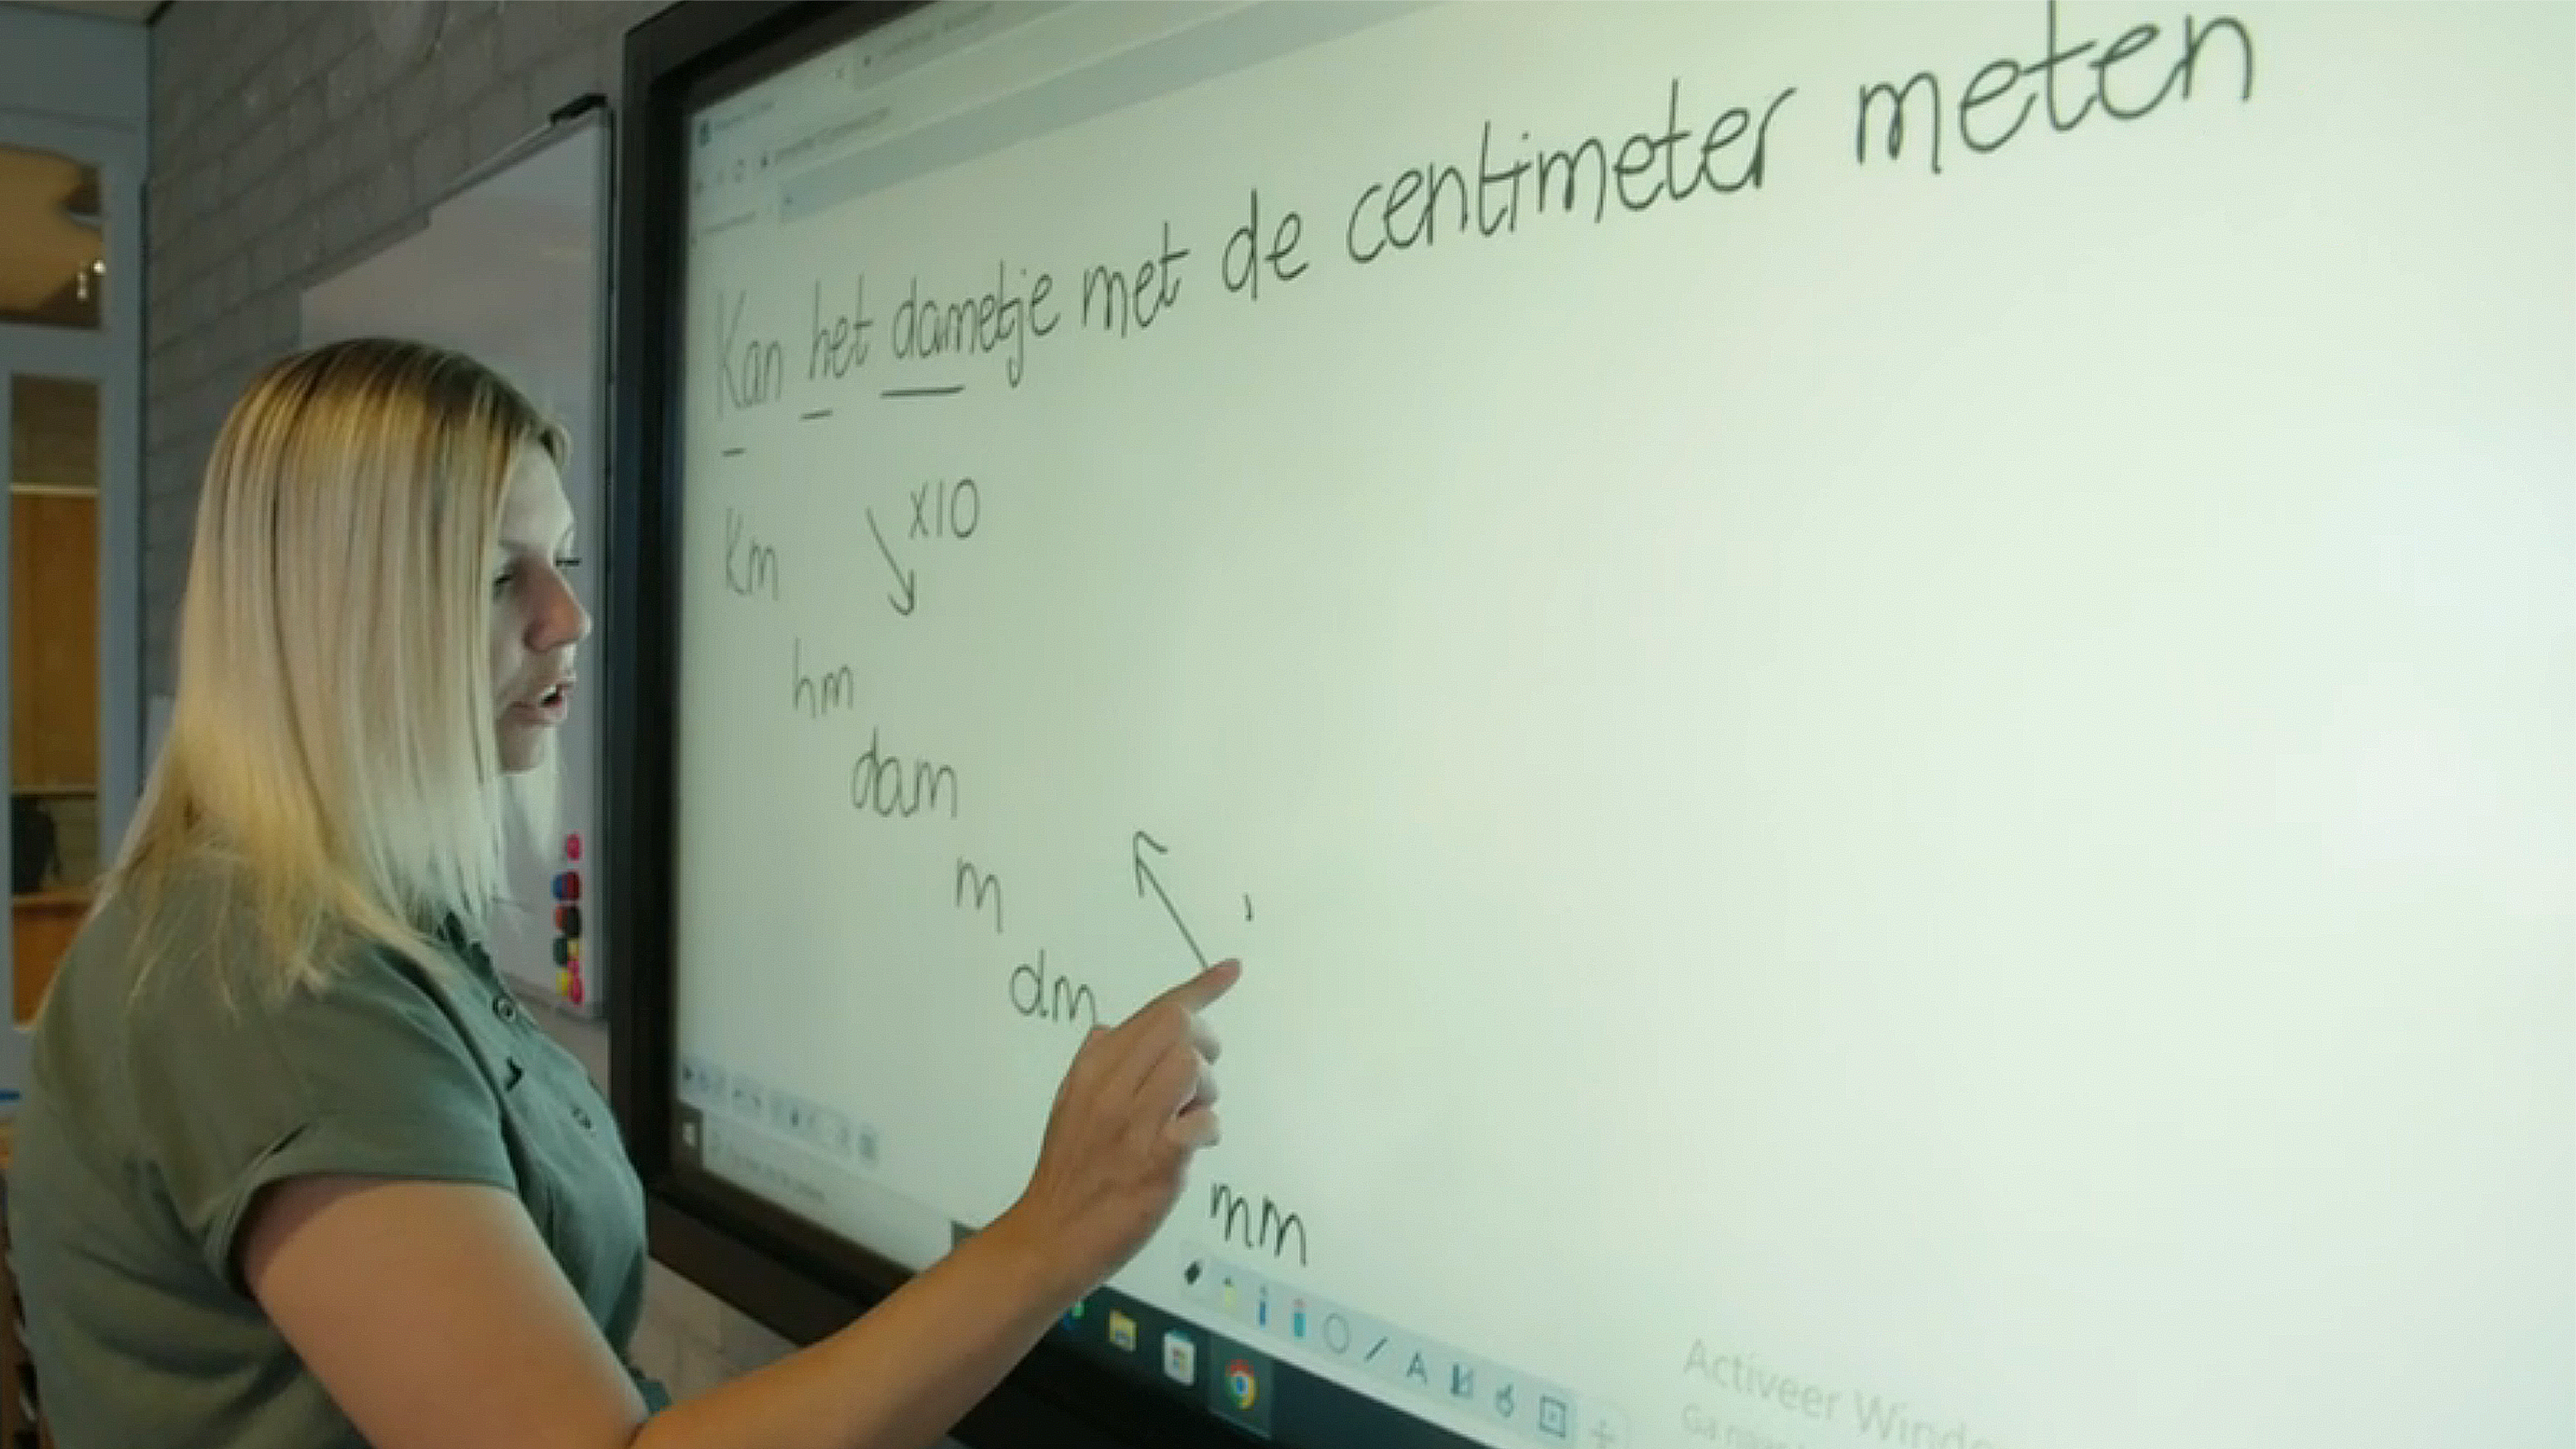 Kan het dametje met de centimeter meten
x10
km
hm
dam
m
dm
mm
A
Activeer Windo
Ga naar